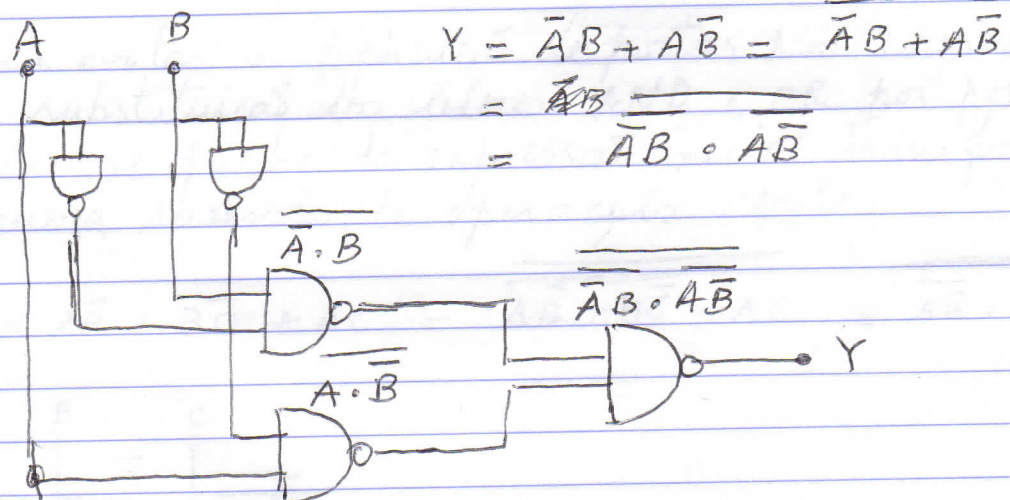 A B
Y = A̅B + AB̅ = A̅B + AB̅
=
= \overline{A̅B} · \overline{AB̅}
\overline{A̅·B}
\overline{\overline{A̅B} · \overline{AB̅}}
\overline{A·B̅}
Y